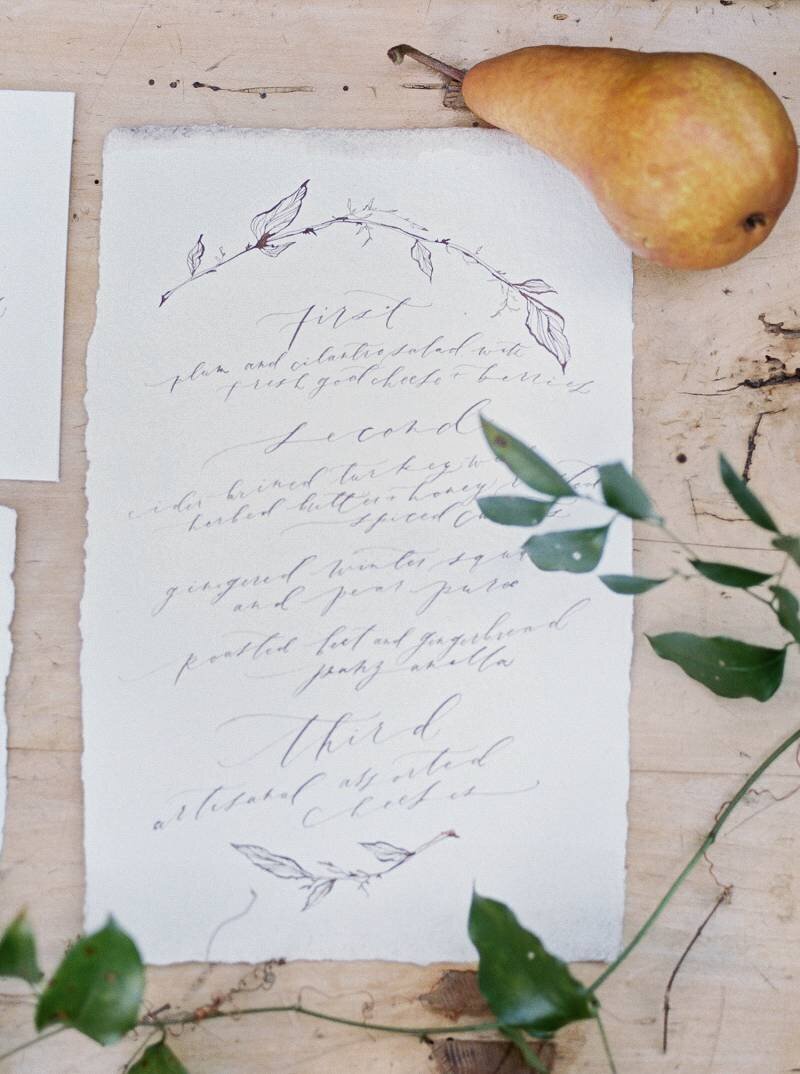 first
plum and cilantro salad with
fresh goat cheese + berries
second
cider brined turkey
herbed butter + honey
spiced
gingered winter
and pear puree
roasted beet and gingerbread
panzanella
third
artesanal assorted
cheeses